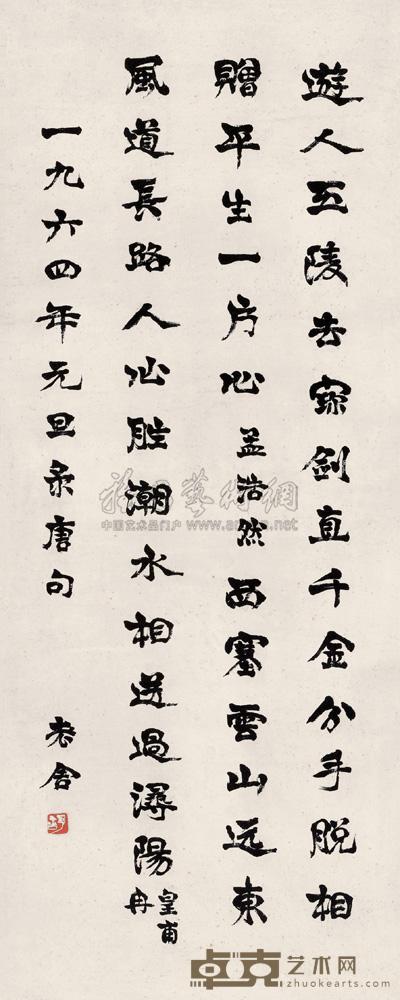 遊人五陵去寶劍直千金分手脱相
贈平生一片心孟浩然西塞雲山远東
風道長路人心胜潮水相送過潯陽皇甫冉
一九六四年元旦录唐句
老舍
中国艺术品门户
卓克艺术网
www.zhuokearts.com